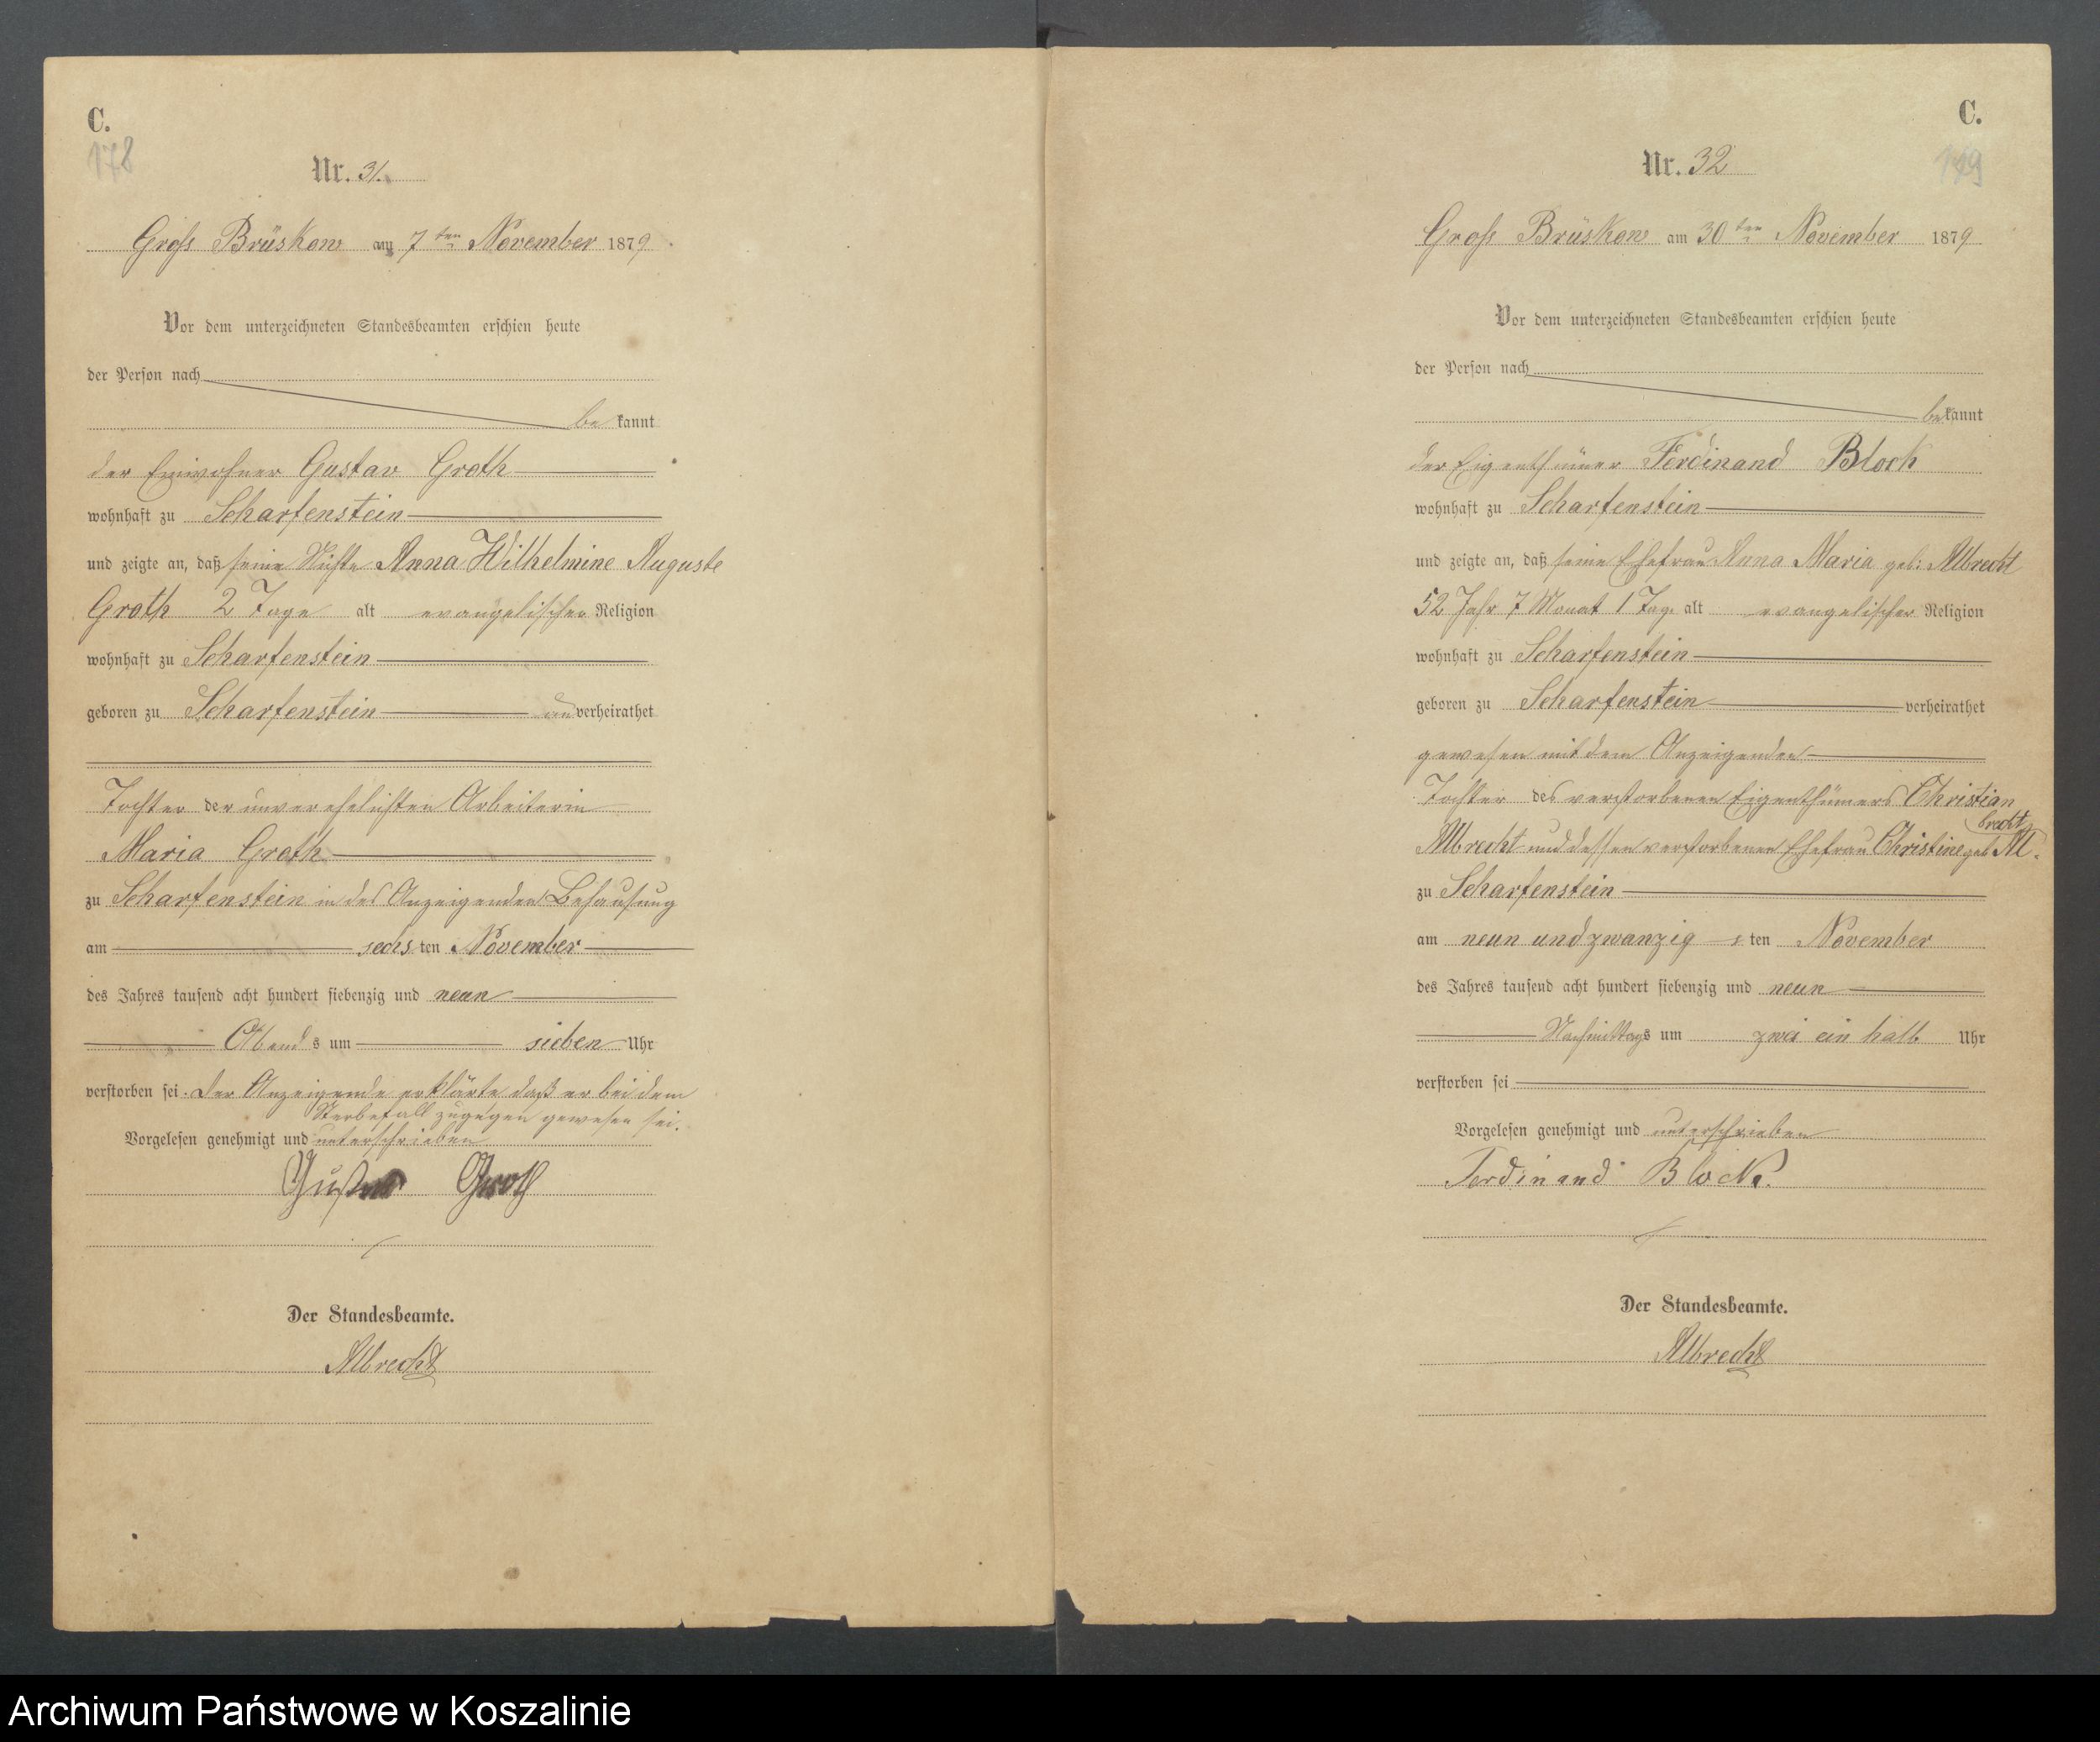 C.
178
Nr. 31.
Gross Brüskow am 7ten November 1879.
Vor dem unterzeichneten Standesbeamten erschien heute
der Person nach
bekannt
der Einwohner Gustav Groth
wohnhaft zu Scharfenstein
und zeigte an, daß seine Nichte Anna Wilhelmine Auguste
Groth 2 Tage alt evangelischer Religion
wohnhaft zu Scharfenstein
geboren zu Scharfenstein unverheirathet
Tochter der unverehelichten Arbeiterin
Maria Groth
zu Scharfenstein in des Anzeigenden Behausung
am sechsten November
des Jahres tausend acht hundert siebenzig und neun
Abends um sieben Uhr
verstorben sei. Der Anzeigende erklärte daß er bei dem
Sterbefall zugegen gewesen sei.
Vorgelesen genehmigt und unterschrieben
Gustav Groth
Der Standesbeamte.
Albrecht
C.
179
Nr. 32
Gross Brüskow am 30ten November 1879
Vor dem unterzeichneten Standesbeamten erschien heute
der Person nach
bekannt
der Eigenthümer Ferdinand Block
wohnhaft zu Scharfenstein
und zeigte an, daß seine Ehefrau Anna Maria geb: Albrecht
52 Jahr 7 Monat 1 Tag alt evangelischer Religion
wohnhaft zu Scharfenstein
geboren zu Scharfenstein verheirathet
gewesen mit dem Anzeigenden
Tochter des verstorbenen Eigenthümers Christian
Albrecht und dessen verstorbenen Ehefrau Christine geb. Albrecht
zu Scharfenstein
am neun und zwanzigsten November
des Jahres tausend acht hundert siebenzig und neun
Nachmittags um zwei ein halb Uhr
verstorben sei
Vorgelesen genehmigt und unterschrieben
Ferdinand Block.
Der Standesbeamte.
Albrecht
Archiwum Państwowe w Koszalinie